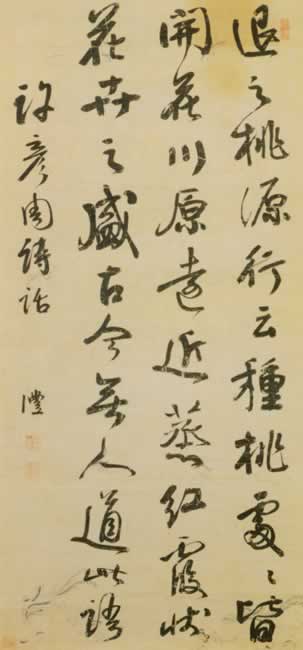 退之桃源行云種桃處處皆
開花川原遠近蒸紅霞狀
花卉之盛古今無人道此語
許彥周詩話
灃